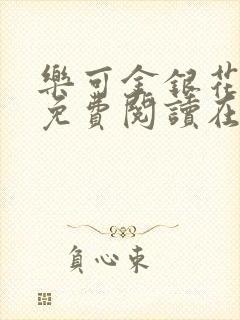 樂可金銀花
免費閱讀在
負心東